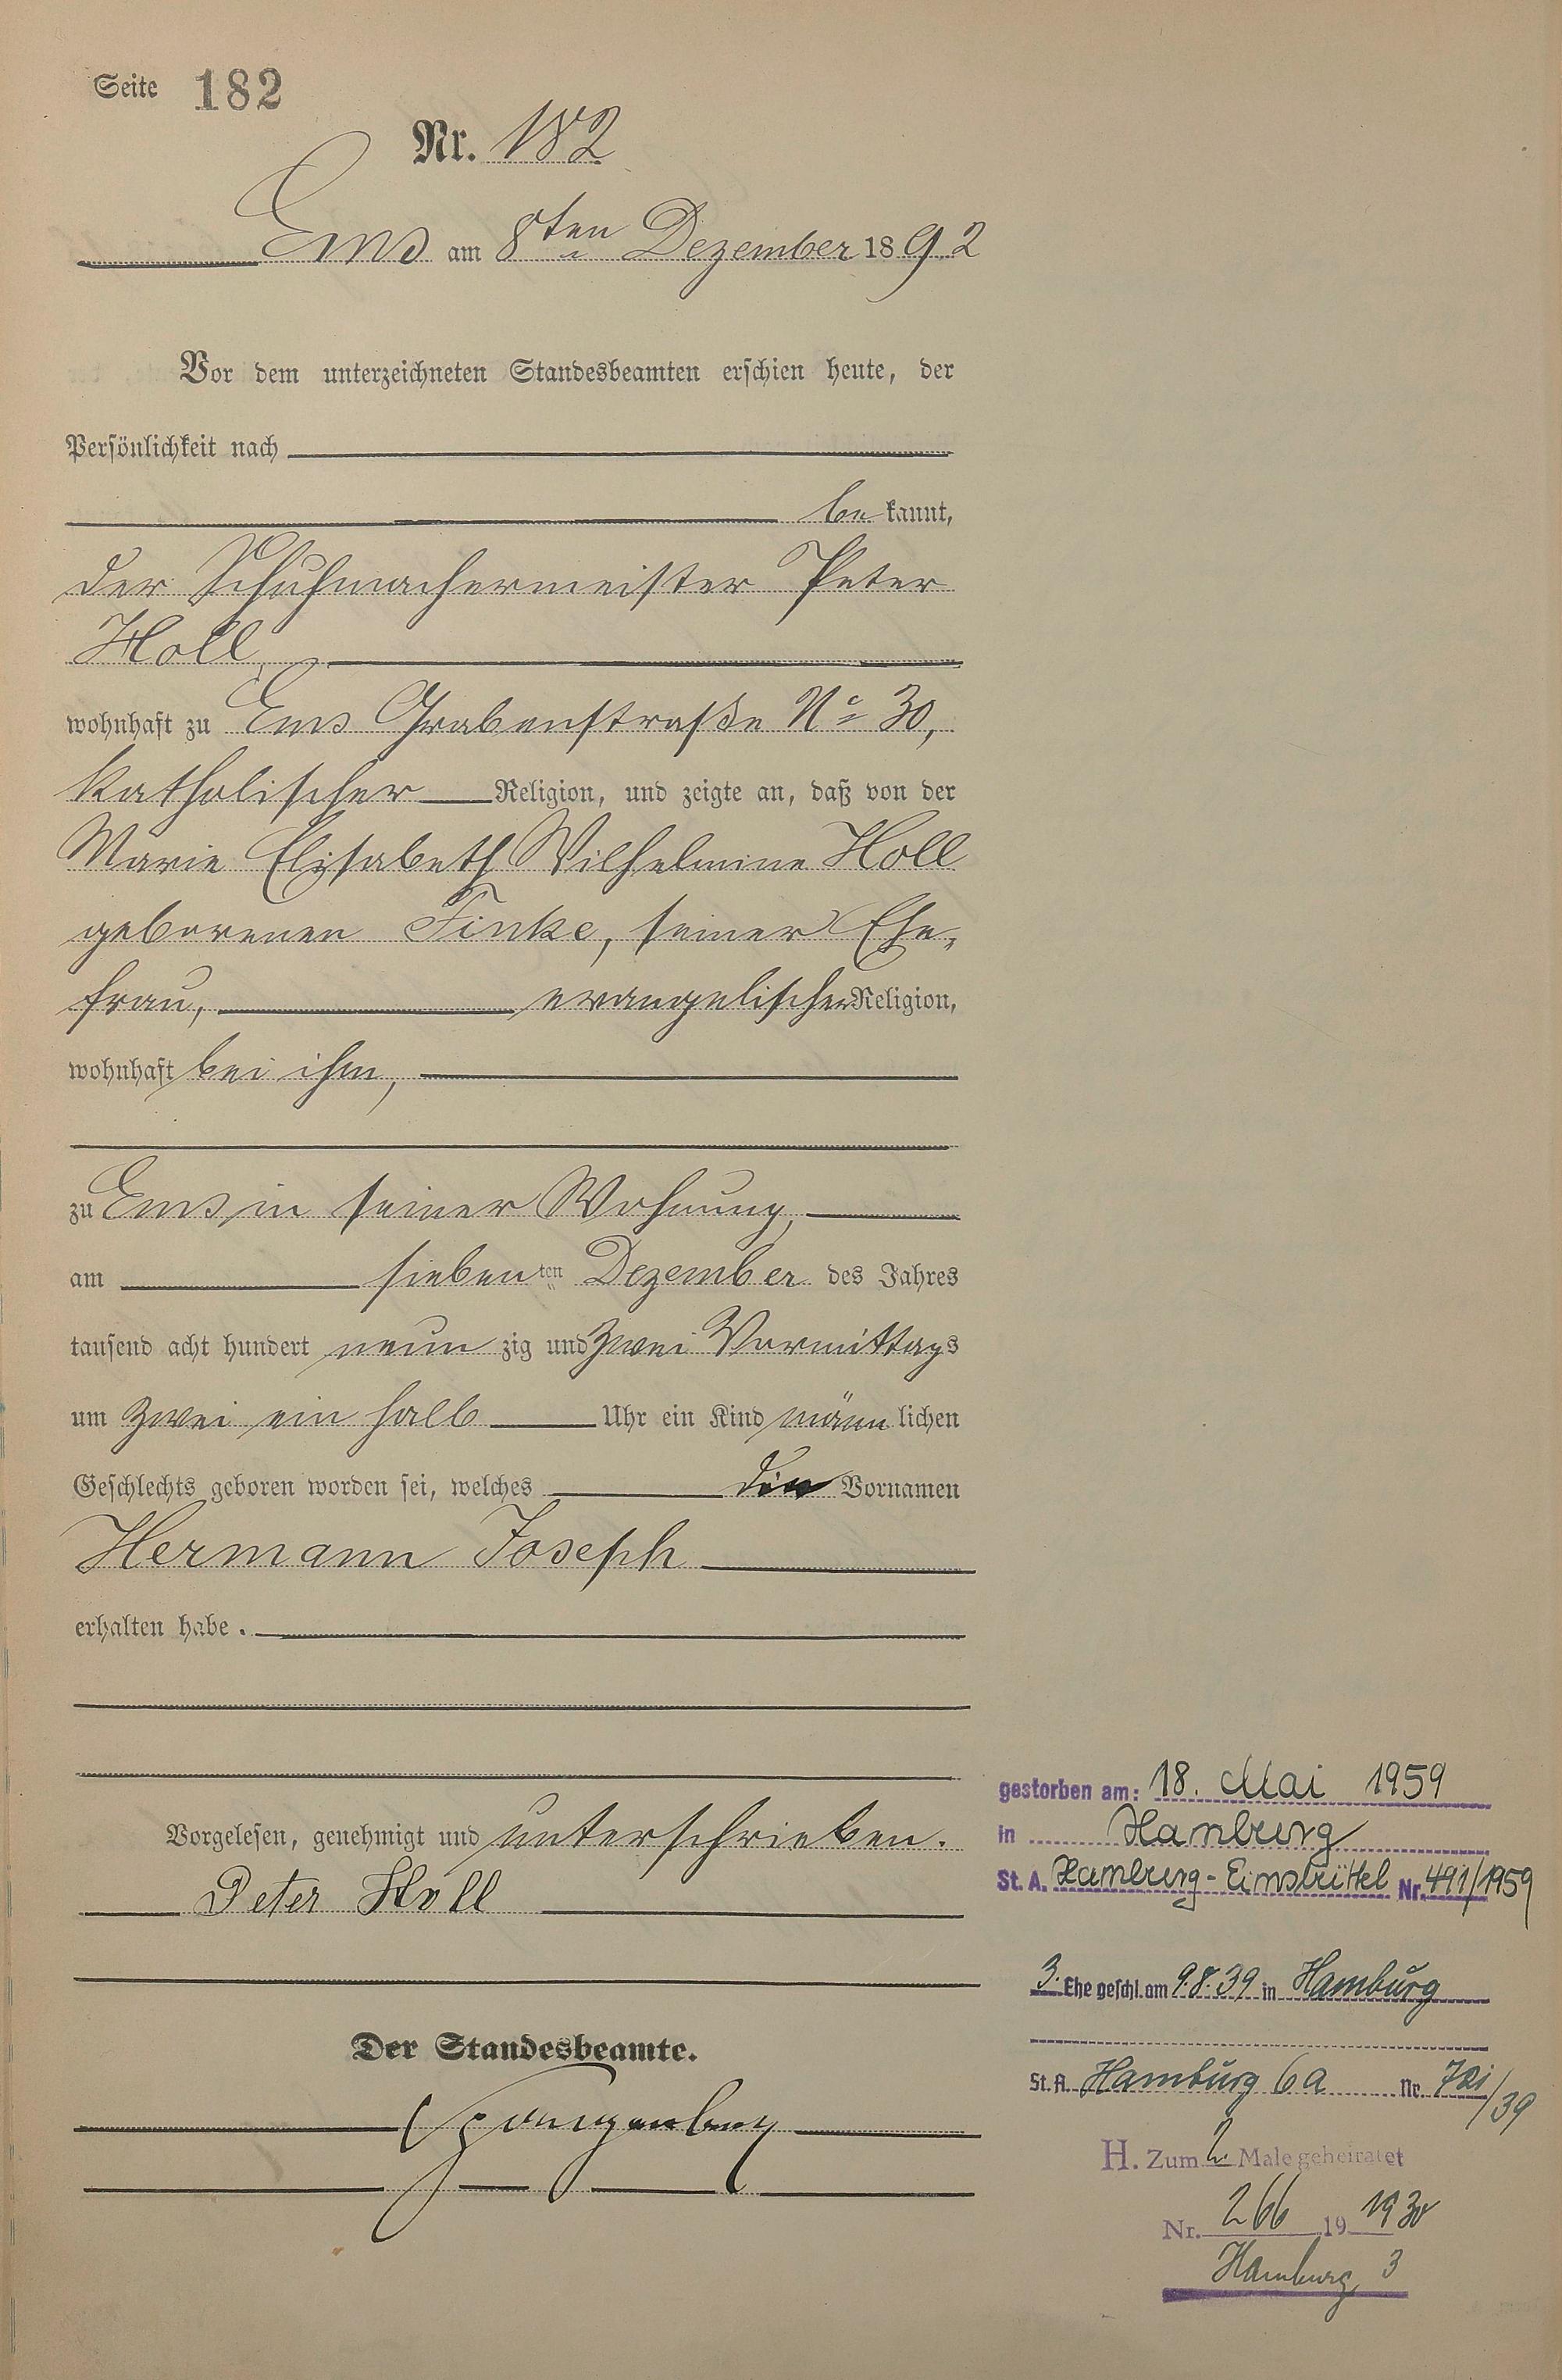 Seite 182
Nr. 182
Ems am 8ten Dezember 1892
Vor dem unterzeichneten Standesbeamten erschien heute, der
Persönlichkeit nach
be kannt,
der Schuhmachermeister Peter
Holl,
wohnhaft zu Ems Grabenstraße No 30,
katholischer Religion, und zeigte an, daß von der
Marie Elisabeth Wilhelmine Holl
geborenen Finke, seiner Ehe-
frau, evangelischer Religion,
wohnhaft bei ihm,
zu Ems in seiner Wohnung,
am siebenten Dezember des Jahres
tausend acht hundert neun zig und zwei Vormittags
um zwei ein halb Uhr ein Kind männ lichen
Geschlechts geboren worden sei, welches die Vornamen
Hermann Joseph
erhalten habe.
Vorgelesen, genehmigt und unterschrieben.
Peter Holl
Der Standesbeamte.
Spangenberg
gestorben am: 18. Mai 1959
in Hamburg
St. A. Hamburg-Eimsbüttel Nr. 491/1959
3. Ehe geschl. am 9.8.39 in Hamburg
St. A. Hamburg 6a Nr. 721/39
H. Zum 2. Male geheiratet
Nr. 266 19 1930
Hamburg 3